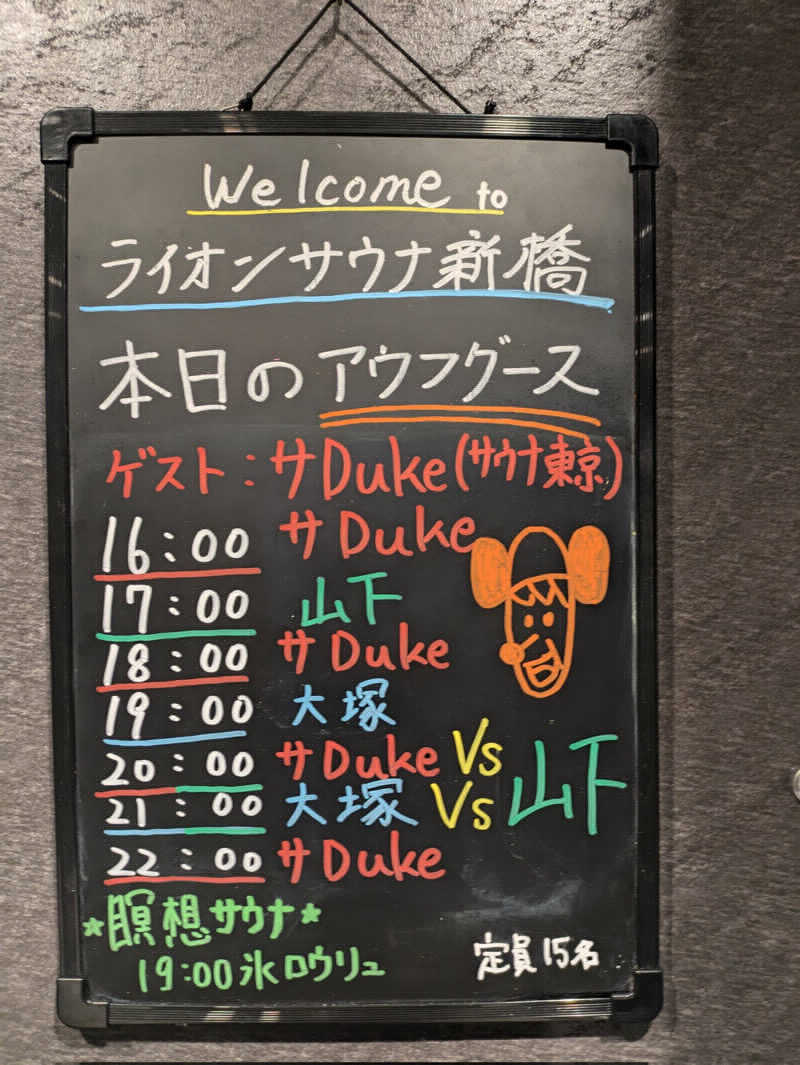 Welcome to
ライオンサウナ新橋
本日のアウフグース
ゲスト:サDuke(サウナ東京)
16:00 サDuke
17:00 山下
18:00 サDuke
19:00 大塚
20:00 サDuke Vs
21:00 大塚 Vs 山下
22:00 サDuke
*瞑想サウナ*
19:00 氷ロウリュ
定員15名